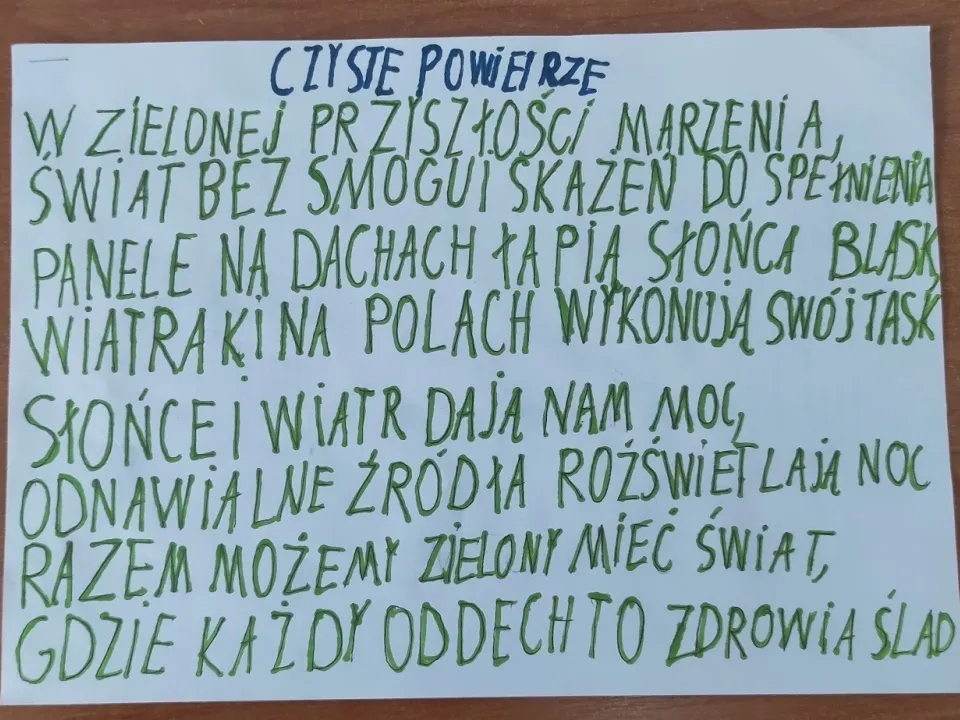 CZYSTE POWIETRZE
W ZIELONEJ PRZYSZŁOŚCI MARZENIA,
ŚWIAT BEZ SMOGU I SKAŻEŃ DO SPEŁNIENIA
PANELE NA DACHACH ŁAPIĄ SŁOŃCA BLASK,
WIATRAKI NA POLACH WYKONUJĄ SWÓJ TASK
SŁOŃCE I WIATR DAJĄ NAM MOC,
ODNAWIALNE ŹRÓDŁA ROZŚWIETLAJĄ NOC
RAZEM MOŻEMY ZIELONY MIEĆ ŚWIAT,
GDZIE KAŻDY ODDECH TO ZDROWIA ŚLAD